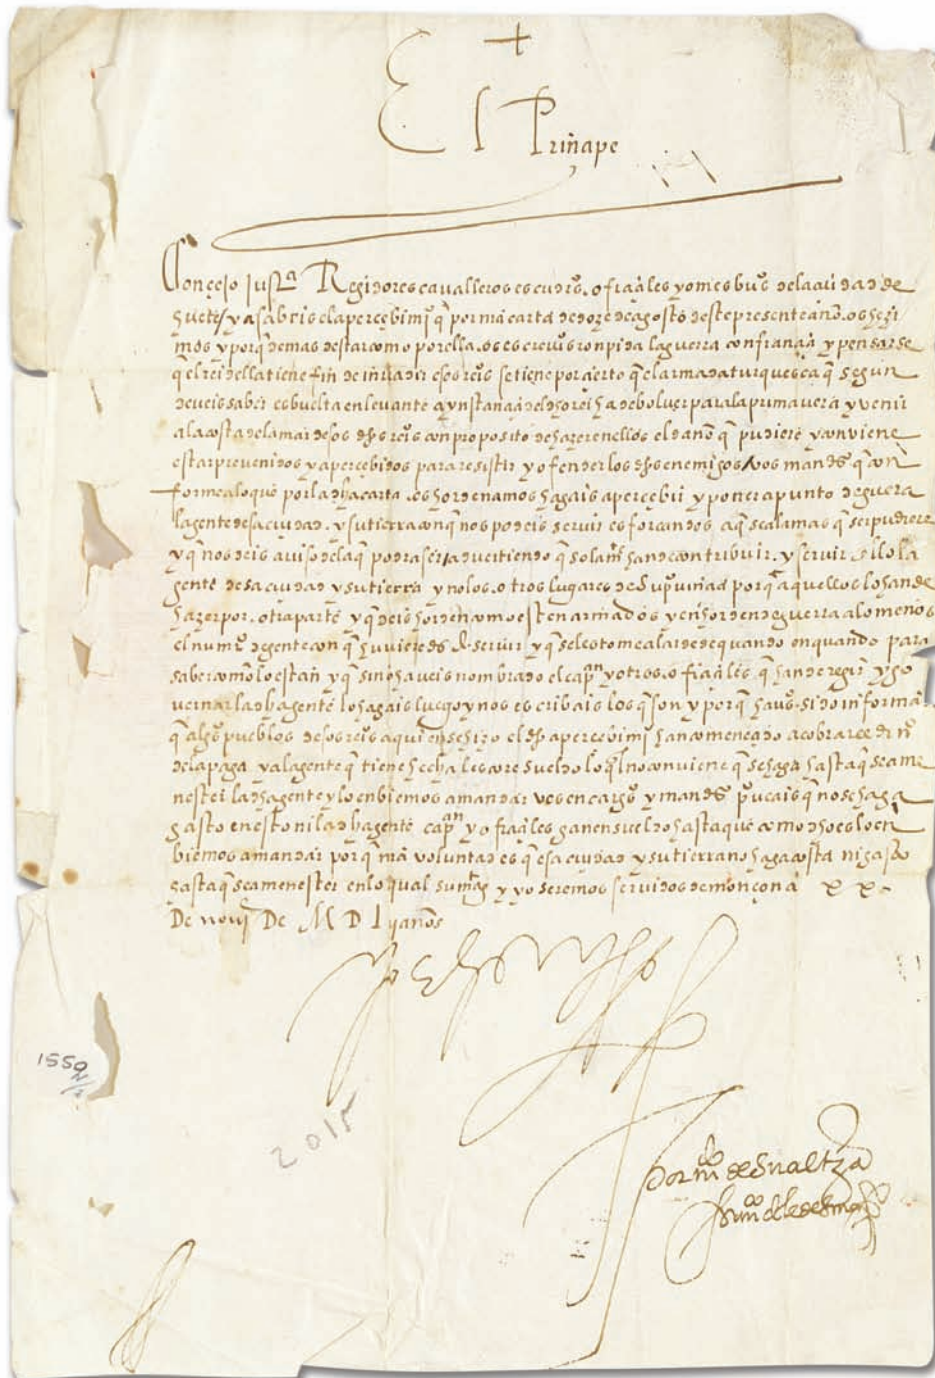 +
El Prinçipe
Conçejo Just.ª Regidores cavalleros escud.os ofiçiales y omes bu.os de la çiudad de
huete / ya sabeis el aperçebimi.o q̃ por mi carta de doze de agosto deste presente año os hezi
mos y porq̃ demas destar como por ella os escrevi.os ronpida la guerra con françia y pensarse
q̃ el rei della tiene fin de invadir esos rei.s se tiene por çierto q̃ el armada turquesca q̃ segun
deveis saber es buelta en levante a ynstançia del dho rei ha de bolver para la primavera y venir
a la costa de la mar desos dhos rei.s con proposito de hazer en ellos el daño q̃ pudiere y conviene
estar prevenidos y aperçebidos para resistir y ofender los dhos enemigos / vos mandº q̃ con
forme a lo que por la dha carta os hordenamos hagais aperçebir y poner a punto de guerra
la gente desa çiudad y su tierra con q̃ nos podeis servir esforçandos a q̃ sea la mas q̃ ser pudiere
y q̃ nos deis aviso de la q̃ podra ser / advertiendo q̃ solam.te han de contribuir y servir solo la
gente desa çiudad y su tierra y no los otros lugares de su pruvinçia porq̃ aquellos lo han de
hazer por otra parte y q̃ deis horden como esten armados y en horden de guerra a lo menos
el num.o de gente con q̃ huvieredes de servir y q̃ seles tome alarde de quando en quando para
saber como lo estan y q̃ si no haveis nombrado el cap.an y otros ofiçiales q̃ han de regir y go
vernar la dha gente lo hagais luego y nos escribais los q̃ son y porq̃ havemos sido informa.os
q̃ alg.os pueblos desos rei.s a quien se hizo el dho aperçebim.o han començado a cobrar
de la paga y a la gente q̃ tiene hecha les corre sueldo lo q̃l no conviene q̃ se haga hasta q̃ sea me
nester la dha gente y lo enbiemos a mandar vos encargº y mandº proveais q̃ no se haga
gasto en esto ni la dha gente cap.an y ofiçiales ganen sueldo hasta que como dho es lo en
biemos a mandar porq̃ mi voluntad es q̃ esa çiudad y su tierra no haga costa ni gasto
hasta q̃ sea menester en lo qual su mag.t y yo seremos servidos de monçon a xx
De novi.e De M D lij años
yo el prinçipe
1550
2015